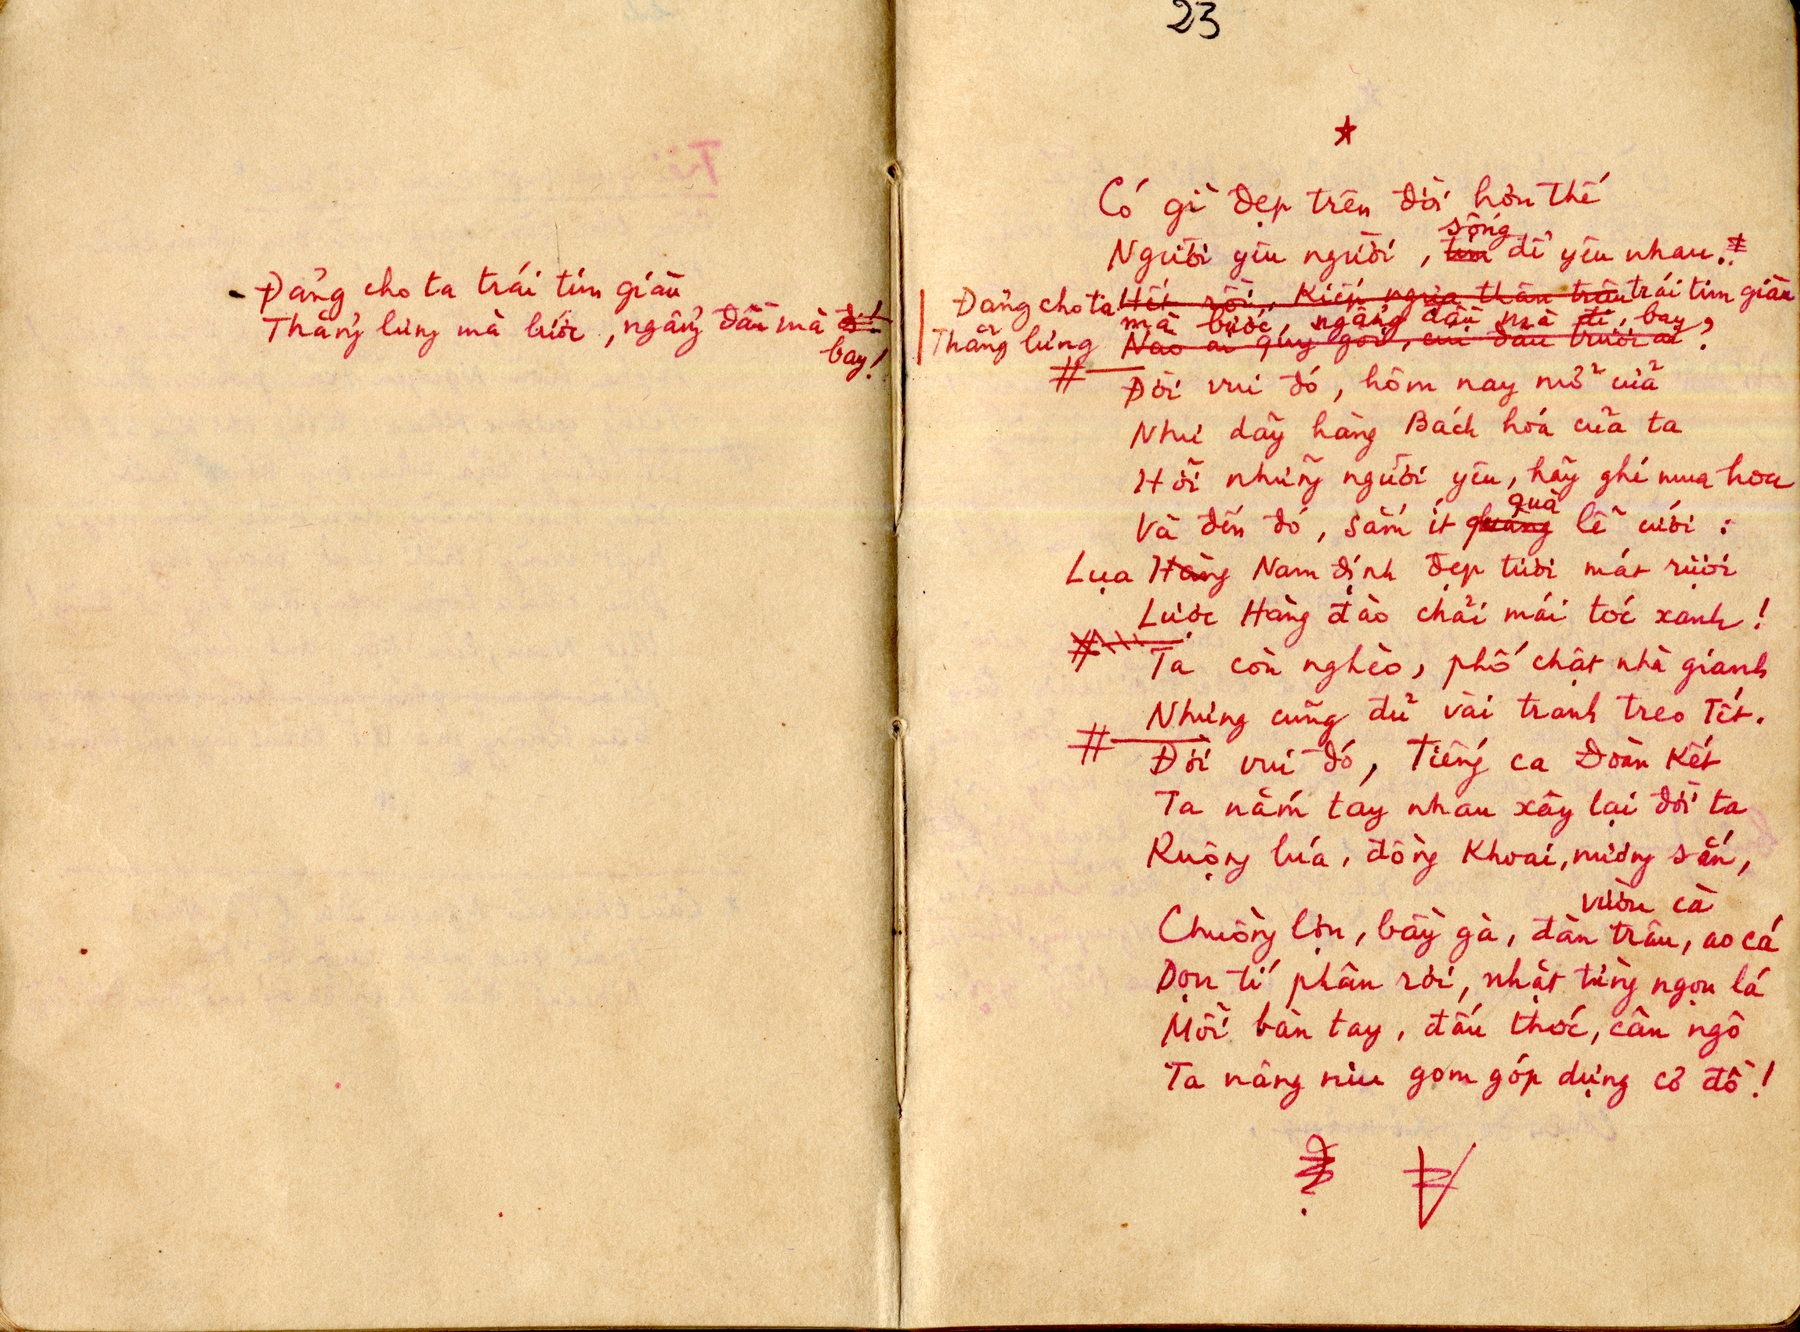 Đảng cho ta trái tim giàu
Thẳng lưng mà bước, ngẩng đầu mà đi!
bay!
23
Có gì đẹp trên đời hơn thế
sống
Người yêu người, để yêu nhau.
Đảng cho ta Hết rồi, Kiếp ngựa thân trâu trái tim giàu
mà bước, ngẩng đầu mà đi, bay
Thẳng lưng Nào ai quỳ gối, cúi đầu trước ai ?
Đời vui đó, hôm nay mở cửa
Như dãy hàng Bách hoá của ta
Hỡi những người yêu, hãy ghé mua hoa
quà
Và đến đó, sắm ít hàng lễ cưới :
Lụa Hàng Nam định đẹp tươi mát rượi
Lược Hàng đào chải mái tóc xanh !
Ta còn nghèo, phố chật nhà gianh
Nhưng cũng đủ vài tranh treo Tết.
Đời vui đó, Tiếng ca Đoàn Kết
Ta nắm tay nhau xây lại đời ta
Ruộng lúa, đồng Khoai, nương sắn,
vườn cà
Chuồng lợn, bầy gà, đàn trâu, ao cá
Dọn tí phân rơi, nhặt từng ngọn lá
Mỗi bàn tay, đấu thóc, cân ngô
Ta nâng niu gom góp dựng cơ đồ !